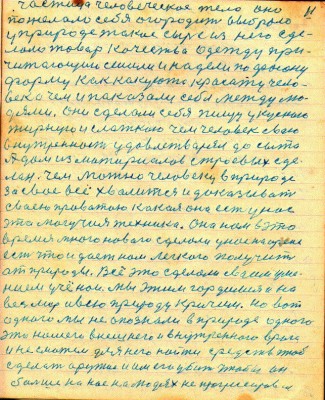 11
частица человеческое тело оно
пожелало себя огородит выбрало
у природе такое сырье из него сде-
лало товар качества одежду при-
читающую сшили и надели по своему
форму как какуюто красату чело-
века чем и показали себя между лю-
дями. Они сделали себя пищу укусною
жирную и сладкою чем человек свою
внутренност удовлетварял до сыта
А дом из материалов строевых сде-
лан. Чем можно человеку в природе
за свое всё хвалится и доказыват
сваею праватою какая она ест у нас
это могучия техника. Она нам в это
время много новаго сделали
ест что и дает нам легкого получит
от природы. Всё это сделали сваим уме-
нием учёном. мы этим гордимся и на
вес мир и всю природу кричим. Но вот
одного мы не опознали в природе одного
это нашего внешнего и внутренного врага
и не смогли для него найти средств чтоб
сделат оружие и им его убит чтобы он
болше на нас на людях не прогресировал